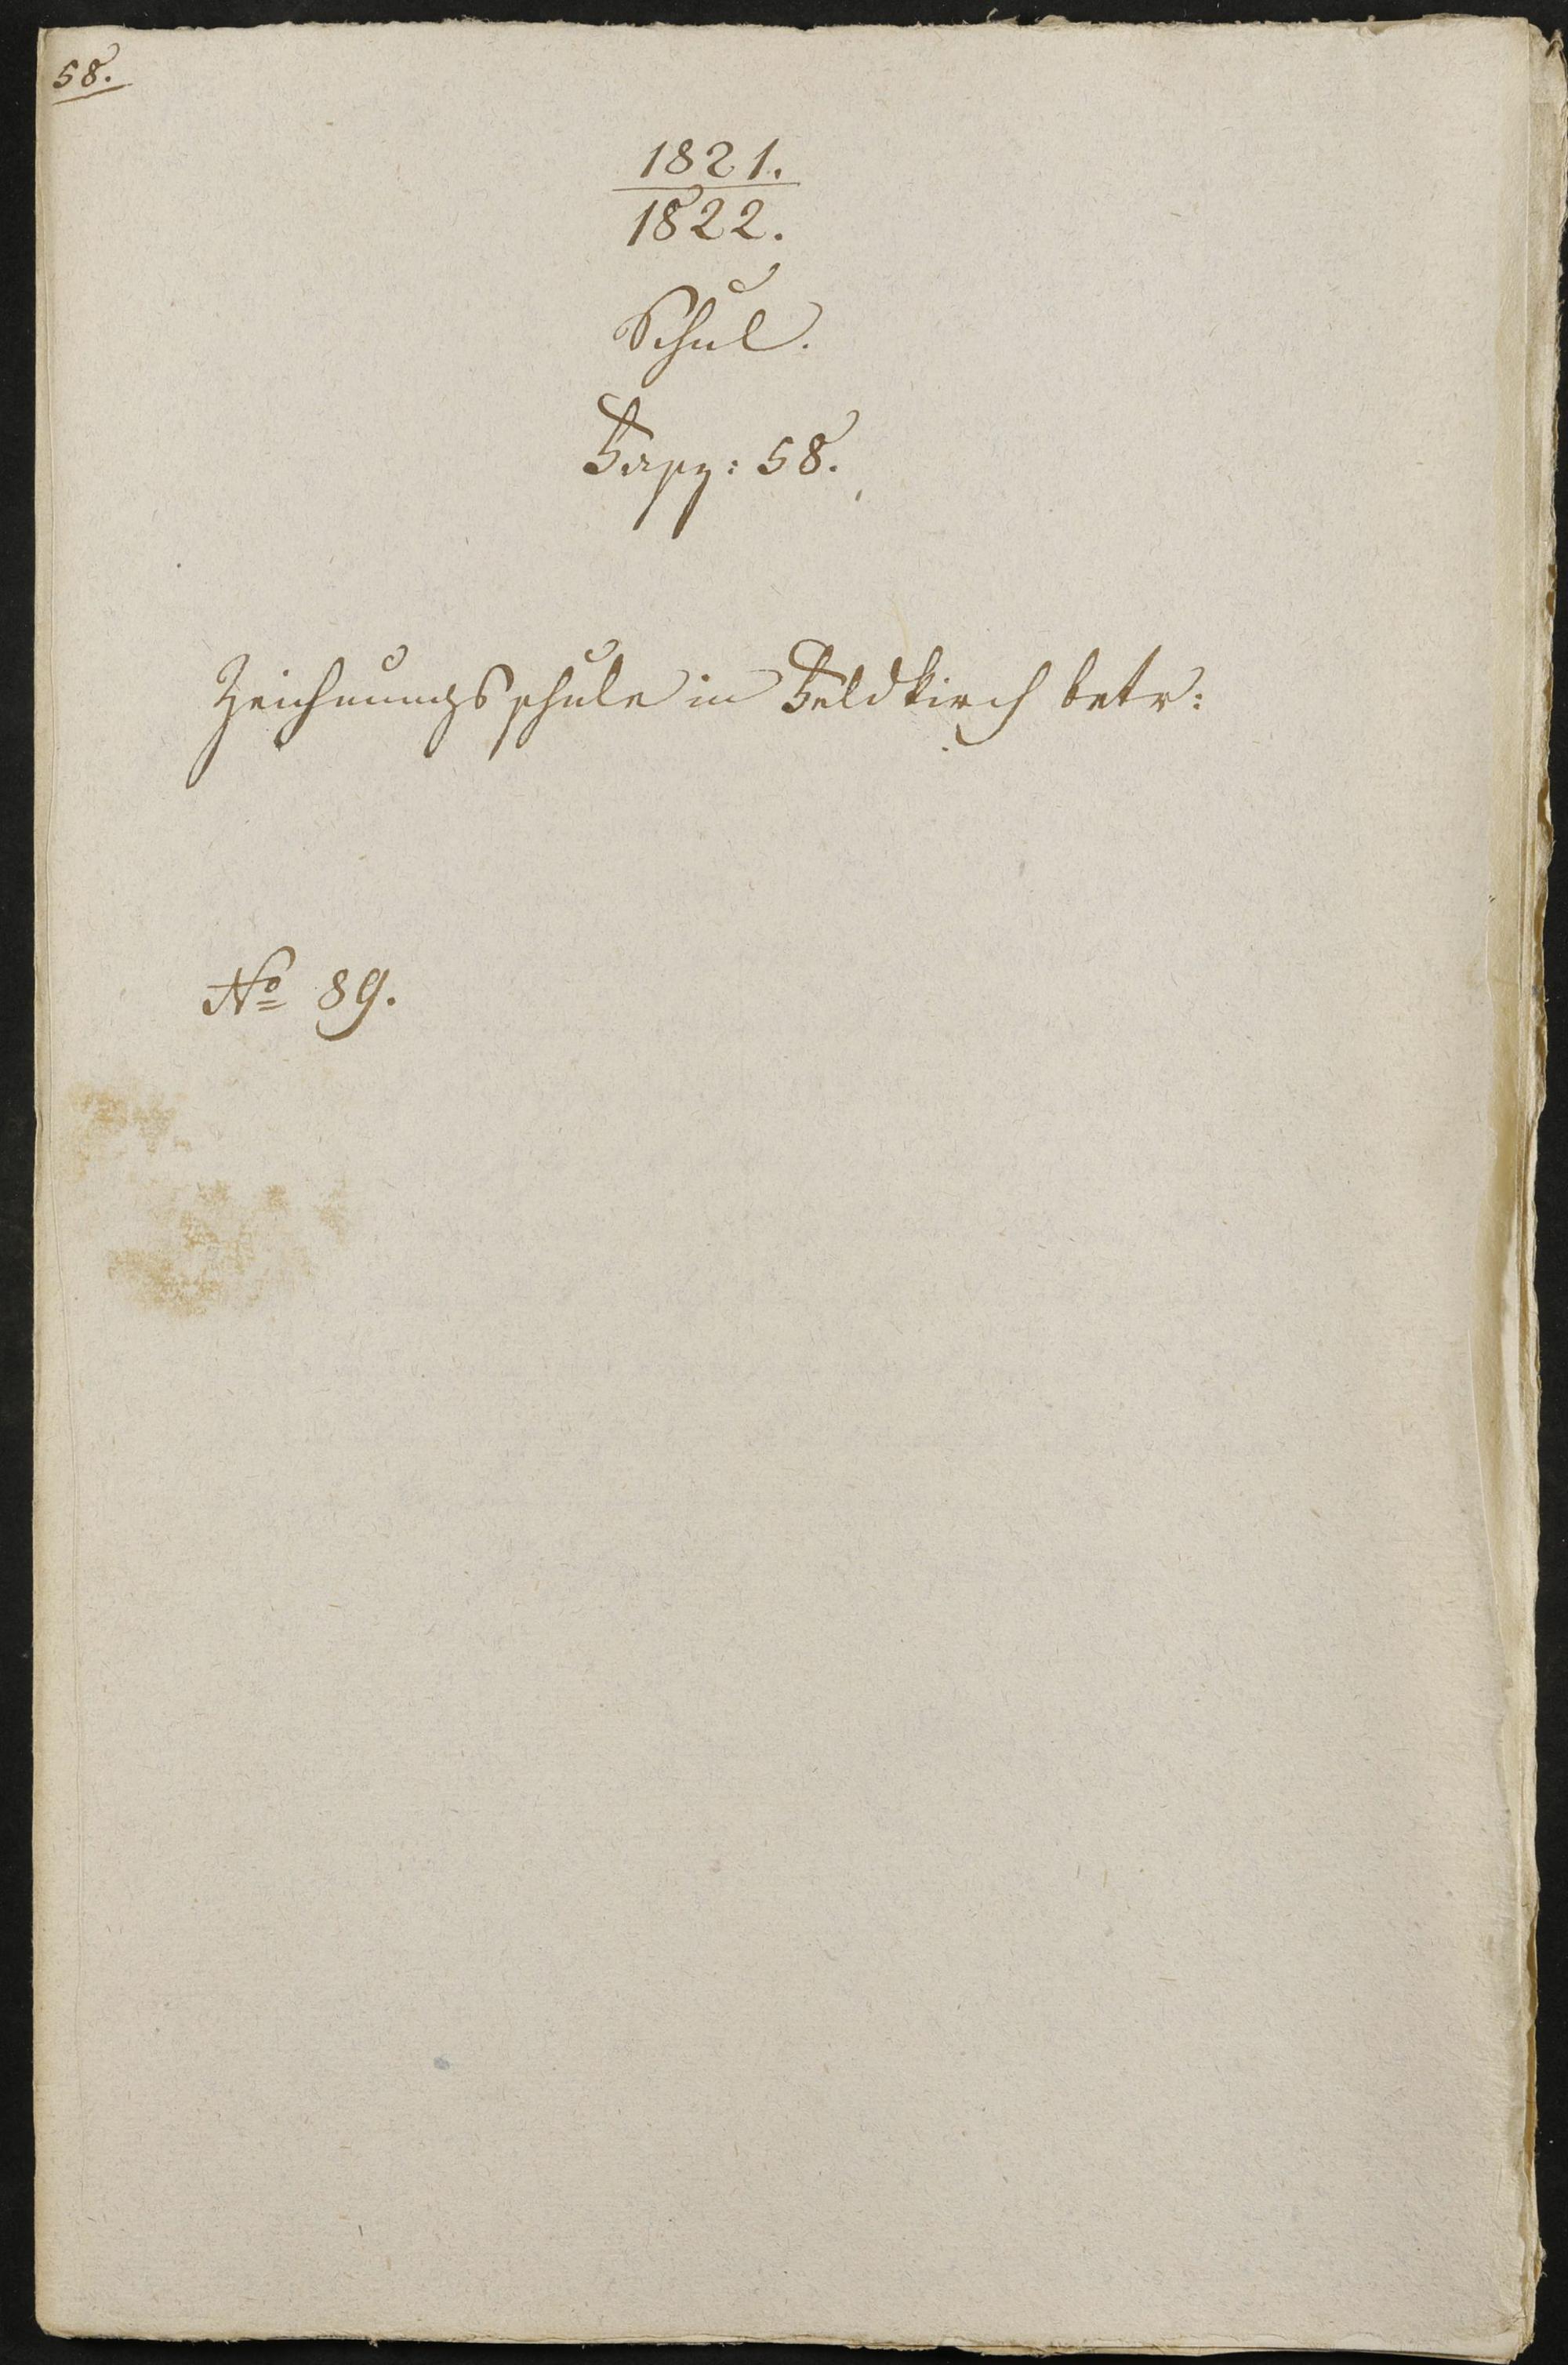 58.
1821.
1822.
Schul.
Fasz: 58.
Zeichnungsschule in Feldkirch betr:
No 89.